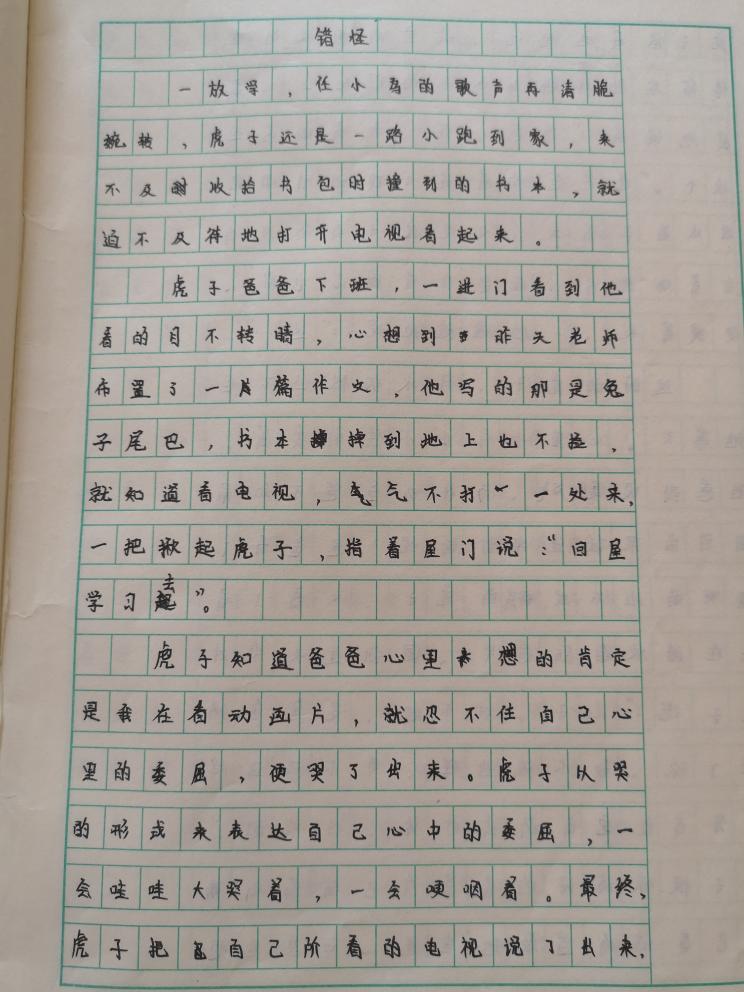 错怪
一放学，任小鸟的歌声再清脆
婉转，虎子还是一路小跑到家，来
不及收拾书包时撞到的书本，就
迫不及待地打开电视看起来。
虎子爸爸下班，一进门看到他
看的目不转睛，心想到昨天老师
布置了一篇作文，他写的那是兔
子尾巴，书本掉到地上也不捡，
就知道看电视，气不打一处来，
一把揪起虎子，指着屋门说：“回屋
学习去”。
虎子知道爸爸心里想的肯定
是我在看动画片，就忍不住自己心
里的委屈，便哭了出来。虎子以哭
的形式来表达自己心中的委屈，一
会哇哇大哭着，一会哽咽着。最终，
虎子把自己所看的电视说了出来，